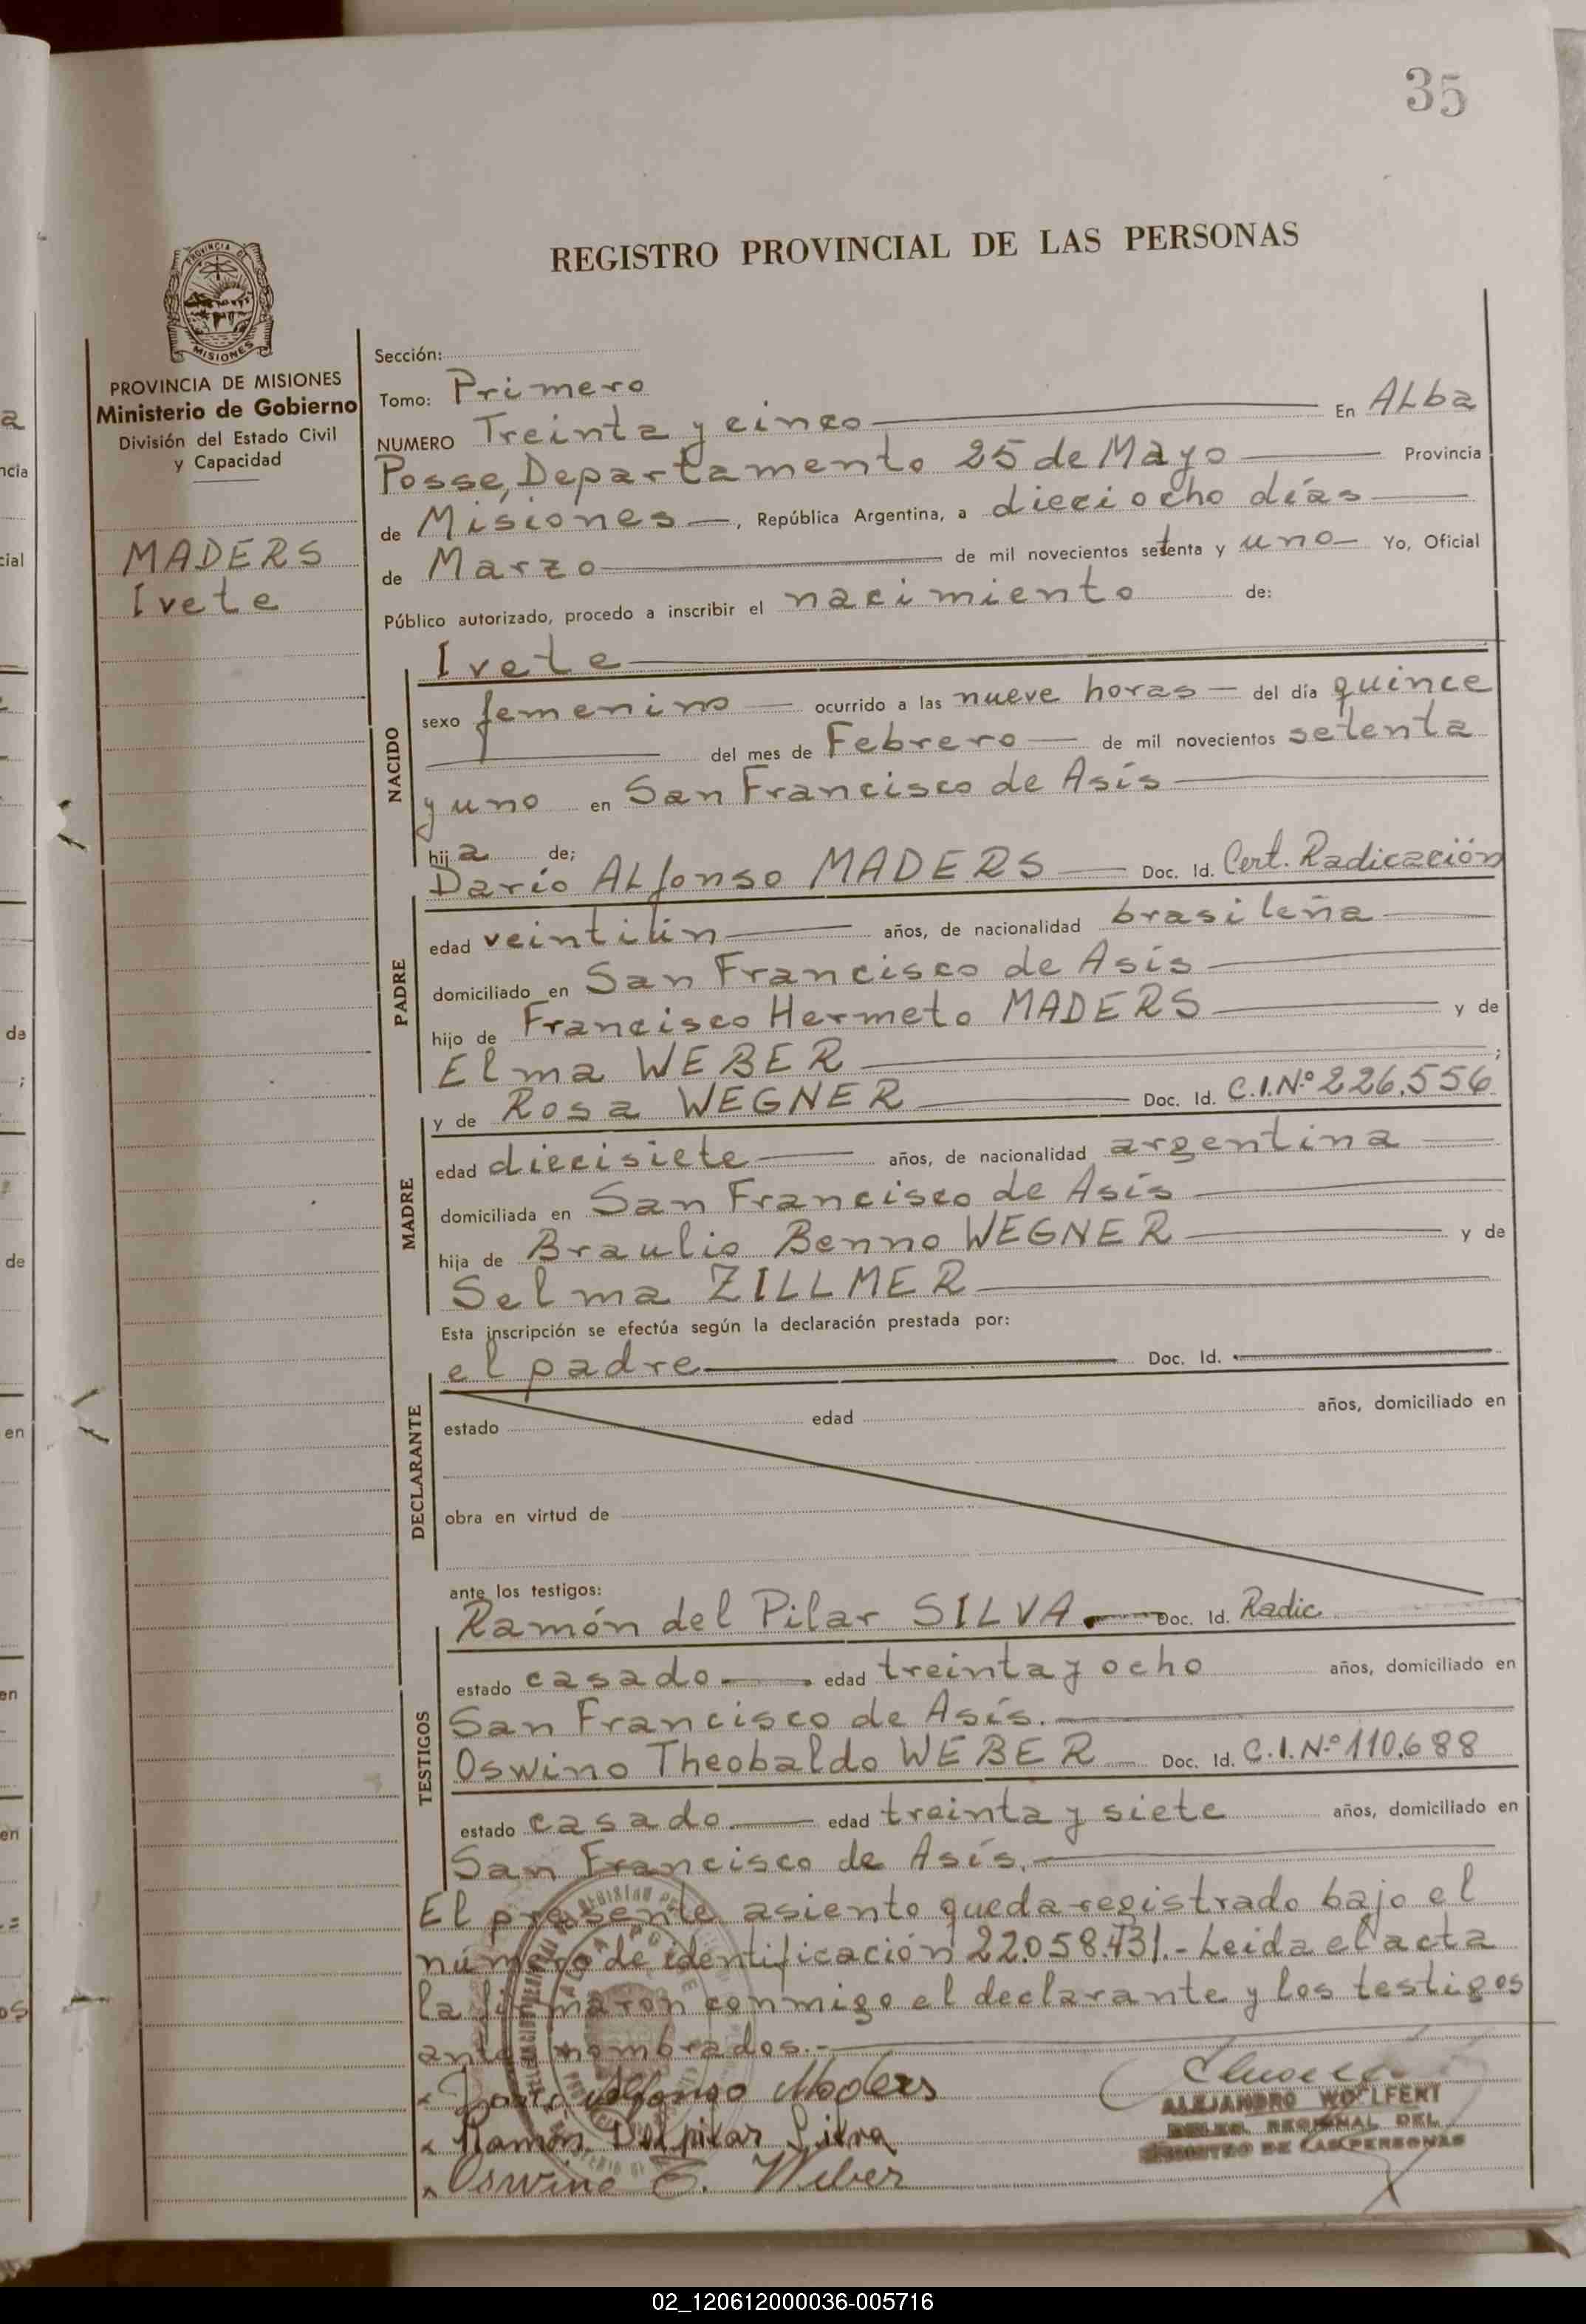 35
REGISTRO PROVINCIAL DE LAS PERSONAS
PROVINCIA DE
MISIONES
PROVINCIA DE MISIONES
Ministerio de Gobierno
División del Estado Civil
y Capacidad
MADERS
Ivete
Sección:
Tomo: Primero
NUMERO Treinta y cinco En ALba
Posse, Departamento 25 de Mayo Provincia
de Misiones, República Argentina, a dieciocho días
de Marzo de mil novecientos setenta y uno Yo, Oficial
Público autorizado, procedo a inscribir el nacimiento de:
NACIDO
Ivete
sexo femenino ocurrido a las nueve horas del día quince
del mes de Febrero de mil novecientos setenta
y uno en San Francisco de Asís
hija de;
PADRE
Darío ALfonso MADERS Doc. Id. Cert. Radicación
edad veintiún años, de nacionalidad brasileña
domiciliado en San Francisco de Asís
hijo de Francisco Hermeto MADERS y de
Elma WEBER ;
MADRE
y de Rosa WEGNER Doc. Id. C.I.Nº 226.556
edad diecisiete años, de nacionalidad argentina
domiciliada en San Francisco de Asís
hija de Braulio Benno WEGNER y de
Selma ZILLMER
Esta inscripción se efectúa según la declaración prestada por:
DECLARANTE
el padre Doc. Id.
estado edad años, domiciliado en
obra en virtud de
ante los testigos:
TESTIGOS
Ramón del Pilar SILVA. Doc. Id. Radic.
estado casado edad treinta y ocho años, domiciliado en
San Francisco de Asís.
Oswino Theobaldo WEBER Doc. Id. C.I.Nº 110.688
estado casado edad treinta y siete años, domiciliado en
San Francisco de Asís.
El presente asiento queda registrado bajo el
número de identificación 22.058.431.- Leida el acta
la firmaron conmigo el declarante y los testigos
antes nombrados.-
Dario Alfonso Maders
Ramon Del pilar Silva
Oswino E. Weber
ALEJANDRO WOLFERT
DELEG. REGIONAL DEL
REGISTRO DE LAS PERSONAS
02_120612000036-005716